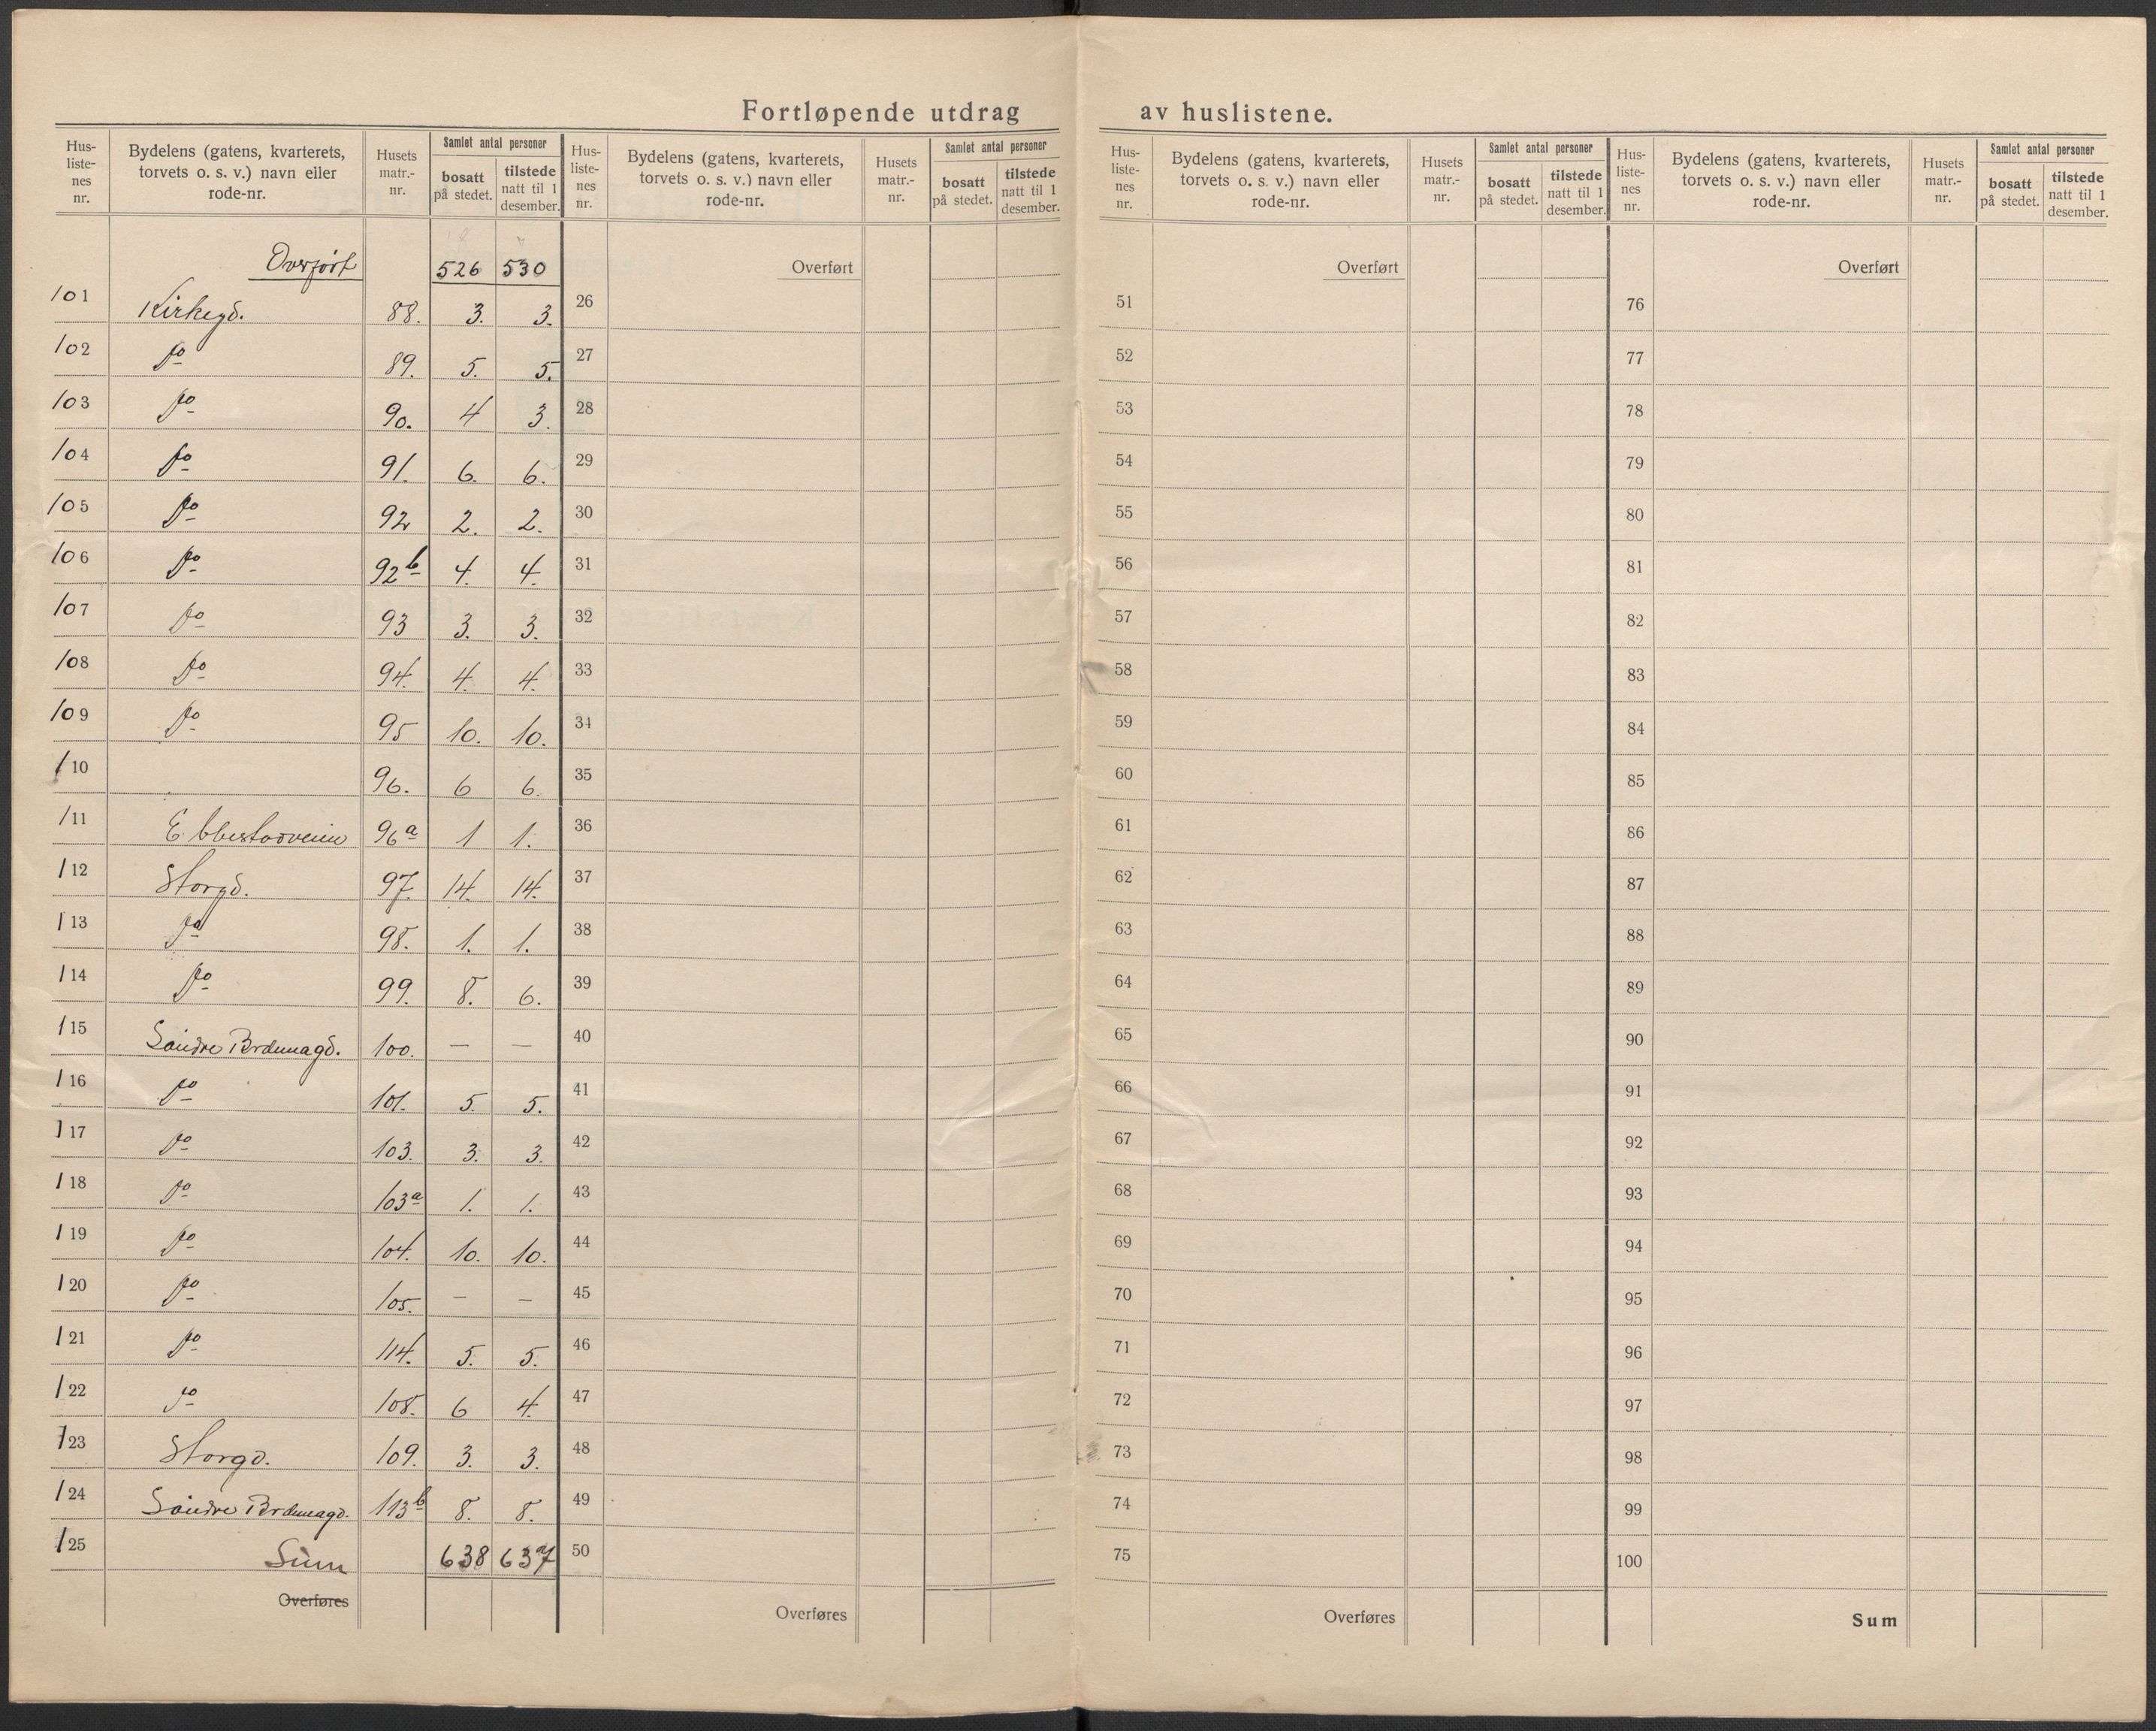 Fortløpende utdrag av huslistene.
Hus-
liste-
nes
nr.
Bydelens (gatens, kvarterets,
torvets o. s. v.) navn eller
rode-nr.
Husets
matr.-
nr.
Samlet antal personer
bosatt
på stedet.
tilstede
natt til 1
desember.
Hus-
liste-
nes
nr.
Bydelens (gatens, kvarterets,
torvets o. s. v.) navn eller
rode-nr.
Husets
matr.-
nr.
Samlet antal personer
bosatt
på stedet.
tilstede
natt til 1
desember.
Hus-
liste-
nes
nr.
Bydelens (gatens, kvarterets,
torvets o. s. v.) navn eller
rode-nr.
Husets
matr.-
nr.
Samlet antal personer
bosatt
på stedet.
tilstede
natt til 1
desember.
Hus-
liste-
nes
nr.
Bydelens (gatens, kvarterets,
torvets o. s. v.) navn eller
rode-nr.
Husets
matr.-
nr.
Samlet antal personer
bosatt
på stedet.
tilstede
natt til 1
desember.
Overført 526 530 Overført Overført Overført
101 Kirkegd. 88. 3. 3. 26 51 76
102 do 89. 5. 5. 27 52 77
103 do 90. 4 3. 28 53 78
104 do 91. 6. 6. 29 54 79
105 do 92 2. 2. 30 55 80
106 do 92b 4. 4. 31 56 81
107 do 93 3. 3. 32 57 82
108 do 94. 4. 4. 33 58 83
109 do 95 10. 10. 34 59 84
110 96. 6 6. 35 60 85
111 96a 1 1. 36 61 86
112 Storgd. 97. 14. 14. 37 62 87
113 do 98. 1. 1. 38 63 88
114 do 99. 8. 6. 39 64 89
115 Søndre 100. — — 40 65 90
116 do 101. 5. 5. 41 66 91
117 do 103. 3. 3. 42 67 92
118 do 103a 1. 1. 43 68 93
119 do 104. 10. 10. 44 69 94
120 do 105. — — 45 70 95
121 do 114. 5. 5. 46 71 96
122 do 108. 6 4. 47 72 97
123 Storgd. 109. 3. 3. 48 73 98
124 Søndre 113b 8. 8. 49 74 99
125 Sum 638 637 50 75 100
Overføres Overføres Overføres Sum